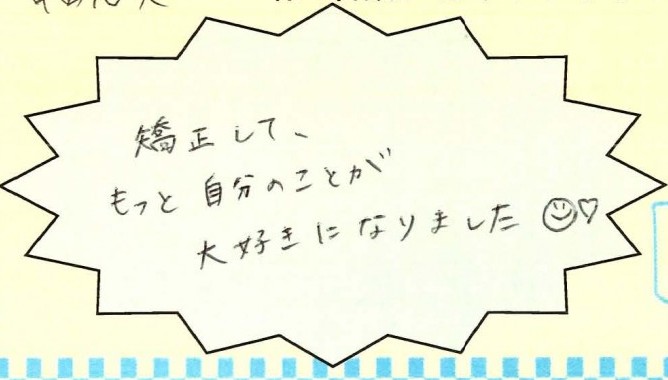 矯正して、
もっと自分のことが
大好きになりました☺♡